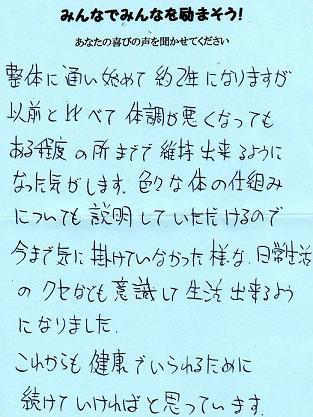 みんなでみんなを励まそう!
あなたの喜びの声を聞かせてください
整体に通い始めて約2年になりますが
以前と比べて体調が悪くなっても
ある程度の所までで維持出来るように
なった気がします。色々な体の仕組み
についても説明していただけるので
今まで気に掛けていなかった様な、日常生活
のクセなども意識して生活出来るよう
になりました。
これからも健康でいられるために
続けていければと思っています。